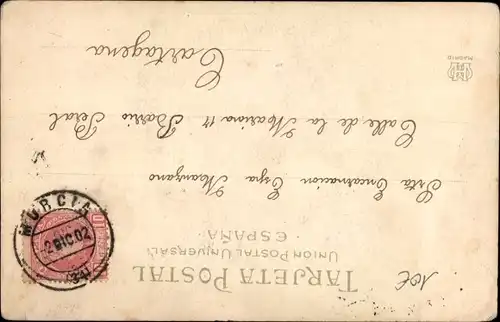 TARJETA POSTAL
UNION POSTAL UNIVERSAL
· ESPAÑA ·
Srta Encarnacion Espa Manzano
Calle de la Marina 17 Barrio Peral
Cartagena
MADRID
MURCIA
2 DIC. 02
10€